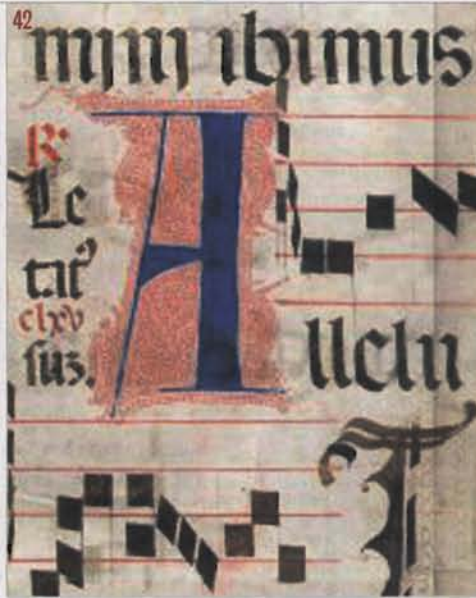 42
mini ibimus
R
Le
tat9
clxv
sus.
A
llelu